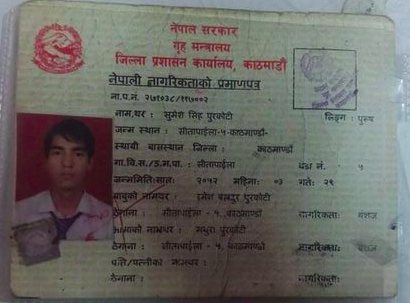 नेपाल सरकार
गृह मन्त्रालय
जिल्ला प्रशासन कार्यालय, काठमाडौं
नेपाली नागरिकताको प्रमाणपत्र
ना.प्र.नं. २७१०३८/११७००२
नाम,थर : सुमेश सिंह पुरकोटी लिङ्ग : पुरुष
जन्म स्थान : सीतापाईला-५-काठमाण्डौ
स्थायी बासस्थान जिल्ला : काठमाण्डौ
गा.वि.स./उ.म.पा. : सीतापाईला वडा नं. ५
जन्ममिति:साल: २०५२ महिना: ०३ गते: २९
बाबुको नामथर : रमेश बहादुर पुरकोटी
ठेगाना : सीतापाईला - ५, काठमाण्डौ नागरिकता: वंशज
आमाको नामथर : मथुरा पुरकोटी
ठेगाना : सीतापाईला - ५, काठमाण्डौ नागरिकता: वंशज
पति/पत्नीको नामथर :
ठेगाना : नागरिकता: